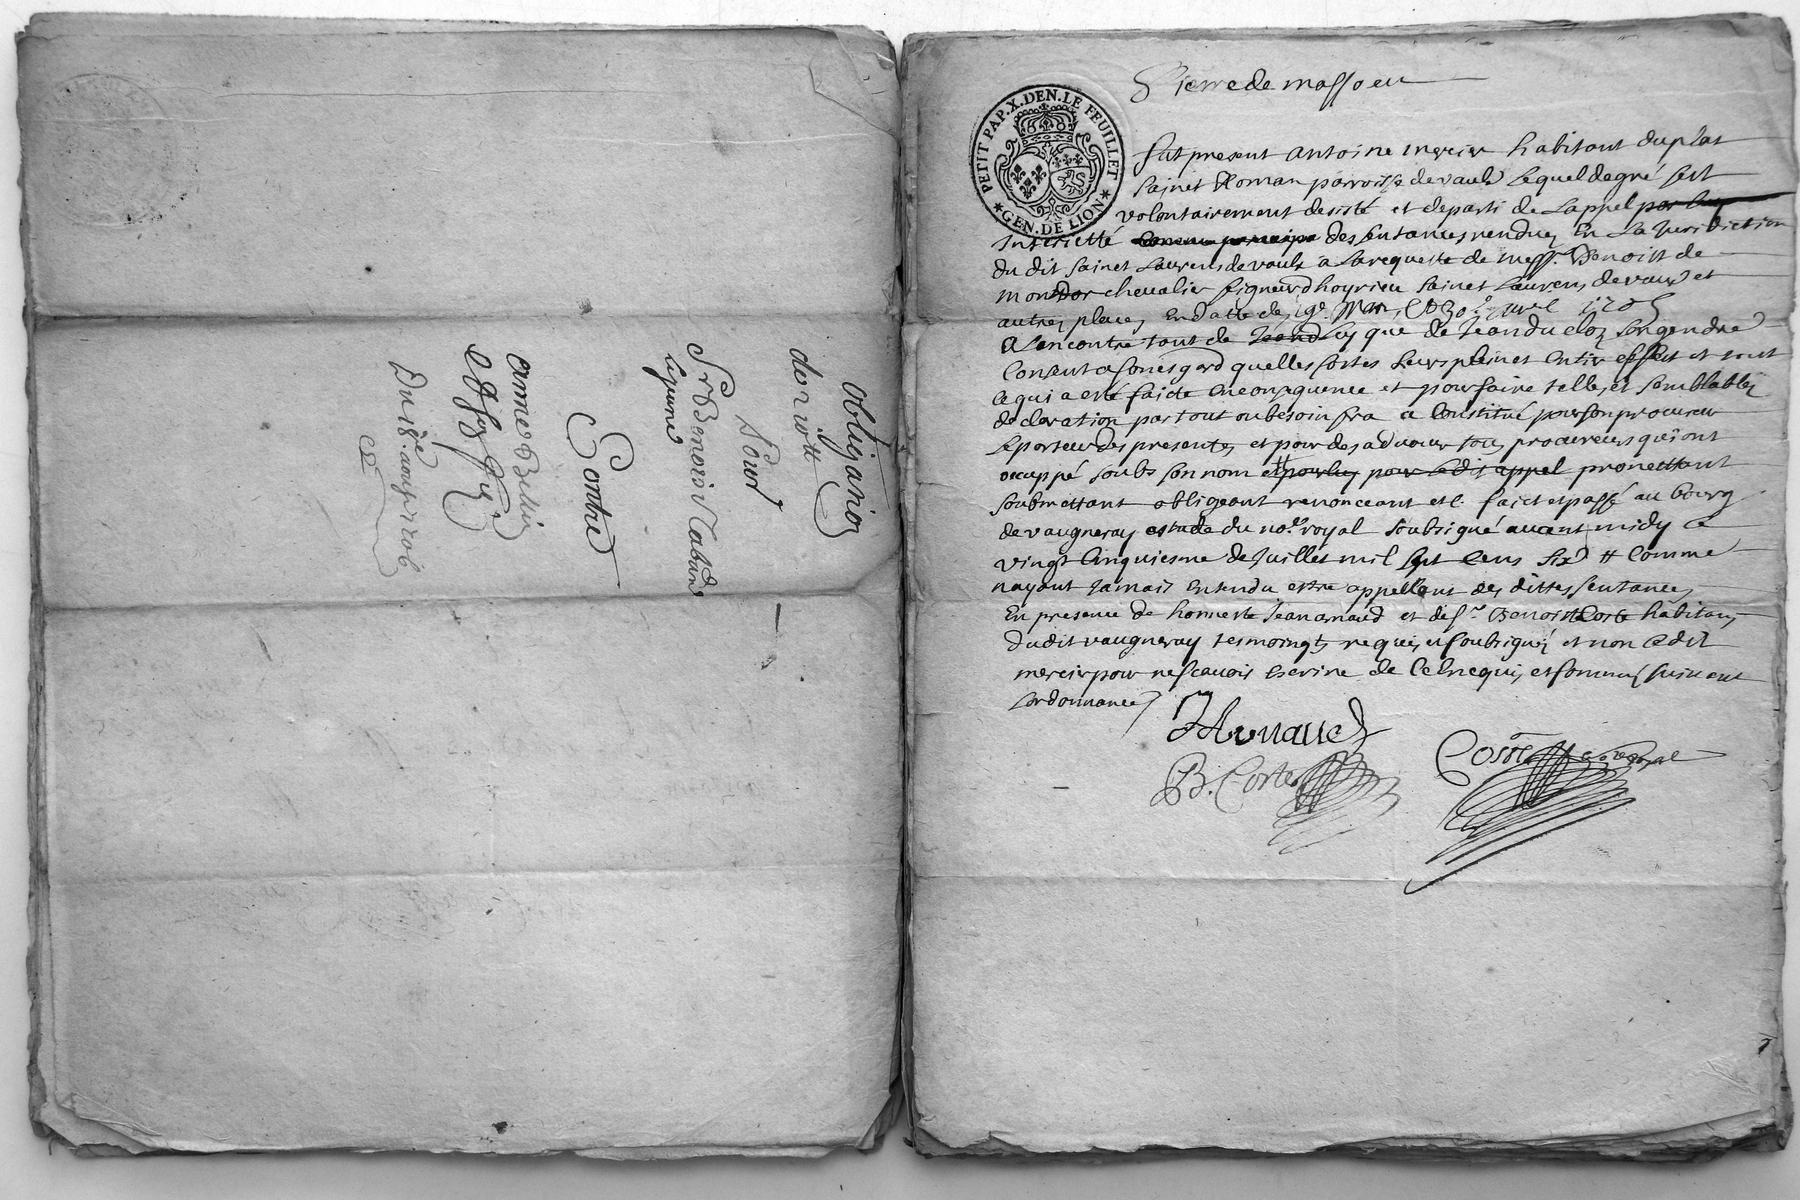 obligation
de
Pour
Sr Benoist
le jeune
Contre
anne
Du 18e aoust 1706
PETIT PAP. X. DEN. LE FEUILLET
* GEN. DE LION *
Pierre de massoeu
fut present antoine mercier habitant du plat
sainct Roman parroisse de vaulx lequel de gré sest
volontairement desisté et departi de lappel par luy
Interietté des sentances rendues En la Jurisdiction
du dit sainct Laurens de vaulx a la requeste de messr. Benoist de
mondor chevalier seigneur dhoyrieu sainct Laurens de vaux et
autres places En datte des
A lencontre tant de luy que de Jean du clos son gendre
Consent a son esgard quelles sortes leurs plein et Entier effect et tout
ce qui a esté faict En consequence et pour faire telles et semblables
declaration par tout ou besoin sera a Constitué pour son procureur
le porteur des presentes et pour desadvouer tous procureurs qui ont
occuppé soubs son nom et pour luy pour ledit appel promettant
soubmettant obligeant renonceant etc. faict et passé au bourg
de vaugneray estude du nore royal soubsigné avant midy ce
vingt Cinquiesme de Juillet mil sept Cens six # Comme
nayant Jamais Entendu estre appellant des dittes sentances
En presence de honneste Jean arnaud et de sr. Benoist Coste habitans
dudit vaugneray tesmoingts requis et soubsignés et non ledit
mercier pour ne scavoir Escrire de ce Enequis et sommé suivant
Lordonnance
JArnaud
B. Coste
Coste no.re royal